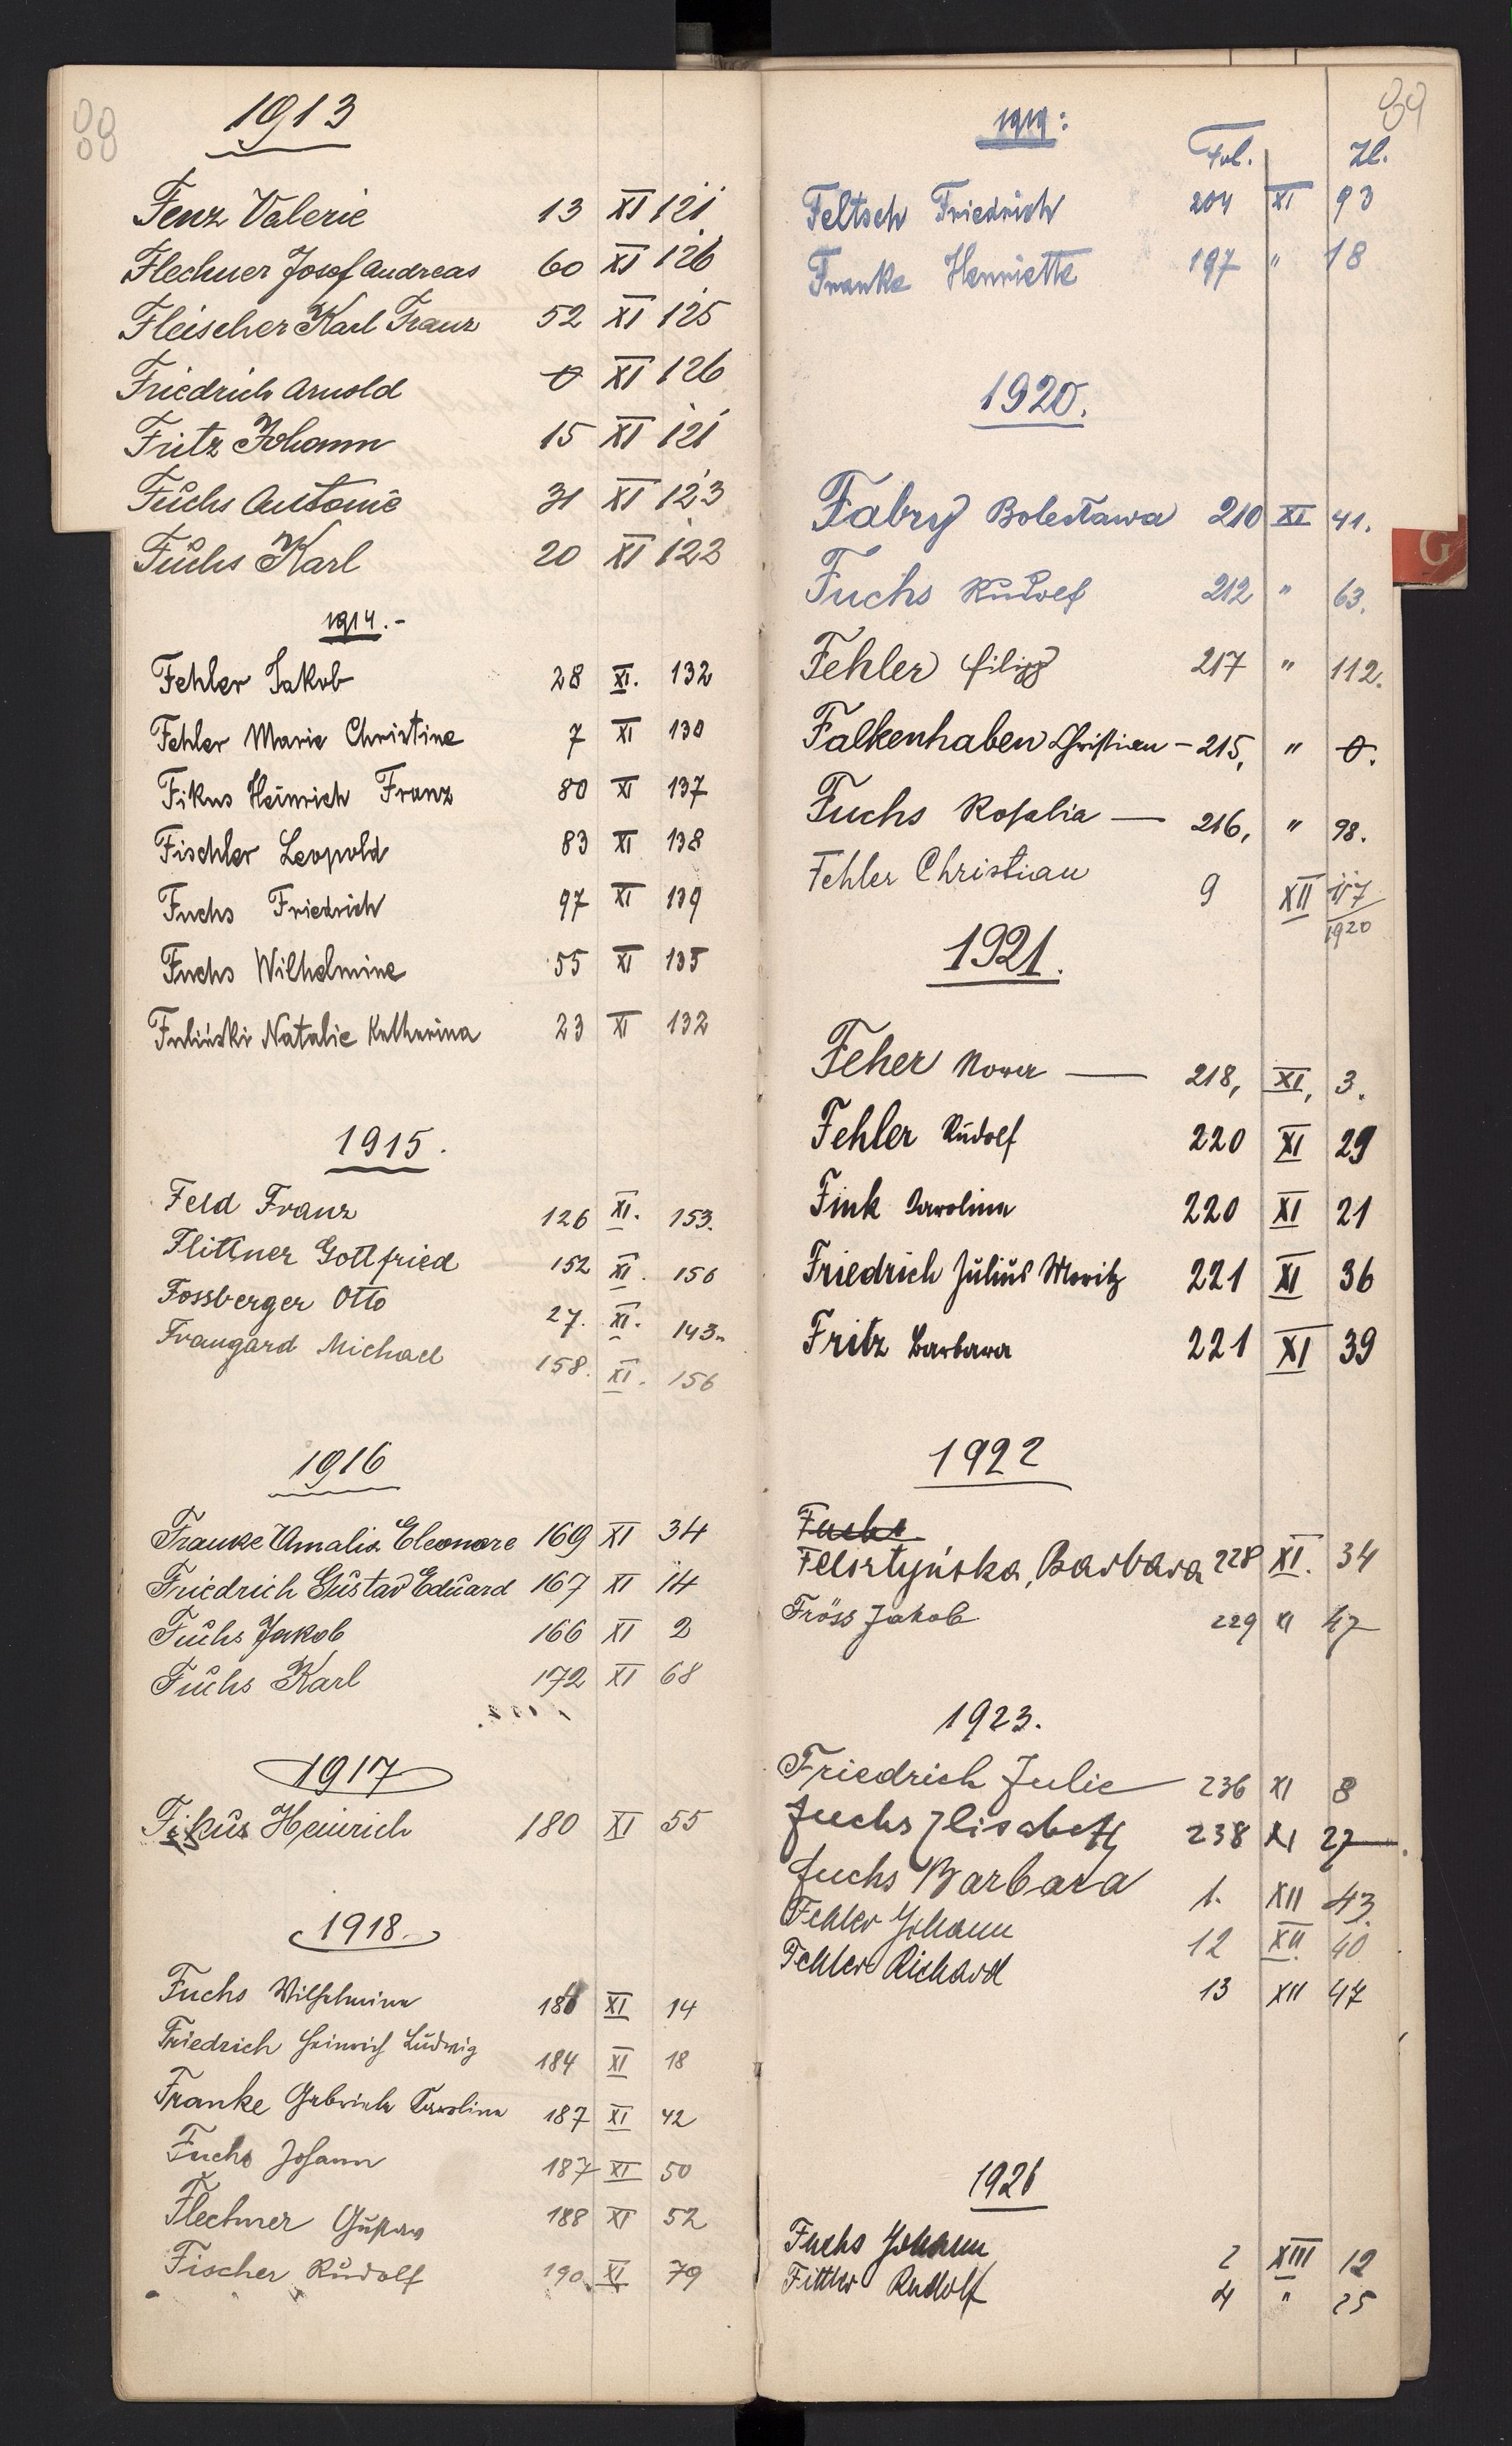 88
1913
Fenz Valerie 13 XI 121
Flechner Josef Andreas 60 XI 126
Fleischer Karl Franz 52 XI 125
Friedrich Arnold 0 XI 126
Fritz Johann 15 XI 121
Fuchs Antonie 31 XI 123
Fuchs Karl 20 XI 122
1914.-
Fehler Jakob 28 XI. 132
Fehler Marie Christine 7 XI 130
Fikus Heinrich Franz 80 XI 137
Fischler Leopold 83 XI 138
Fuchs Friedrich 97 XI 139
Fuchs Wilhelmine 55 XI 135
Fuliński Natalie Katharina 23 XI 132
1915.
Feld Franz 126 XI. 153.
Flittner Gottfried 152 XI. 156
Fossberger Otto 27. XI. 143.
Fraugard Michael 158. XI. 156
1916
Franke Amalia Eleonore 169 XI 34
Friedrich Gustav Eduard 167 XI 14
Fuchs Jakob 166 XI 2
Fuchs Karl 172 XI 68
1917
Fikus Heinrich 180 XI 55
1918.
Fuchs Wilhelmine XI 14
Friedrich Heinrich Ludwig 184 XI 18
Franke Gabriele Karoline 187 XI 42
Fuchs Johann 187 XI 50
Flechner Gustav 188 XI 52
Fischer Rudolf 190. XI 79
89
1919:
Fol. Zl.
Feltsch Friedrich 204 XI 93
Franke Henriette 197 " 18
1920.
Fabry Bolesława 210 XI 41.
Fuchs Rudolf 212 " 63.
Fehler Filipp 217 " 112.
Falkenhaben Christian - 215, " 0.
Fuchs Rosalia — 216, " 98.
Fehler Christian 9 XII 117/1920
1921.
Feher — 218, XI, 3.
Fehler Rudolf 220 XI 29
Fink Karolina 220 XI 21
Friedrich Julius Moritz 221 XI 36
Fritz Barbara 221 XI 39
1922
Fuchs
Felsztyńska, Barbara 228 XI. 34
Fröss Jakob 229 XI 47
1923.
Friedrich Julie 236 XI 8
Fuchs Elisabeth 238 XI 27
Fuchs Barbara 1. XII 43.
Fehler Johann 12 XII 40
Fehler Richard 13 XII 47
1926
Fuchs Johann 2 XIII 12
Fittler Rudolf 4 " 25
G